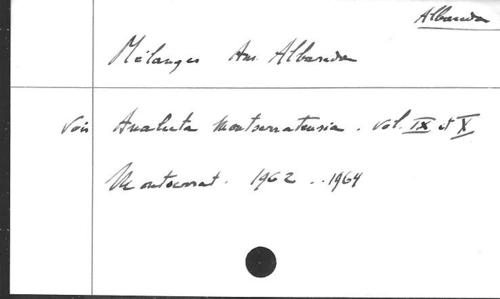 Albareda
Mélanges Ans. Albareda
Voir Analecta Montserratensia. Vol. IX et X
Montserrat. 1962 .. 1964